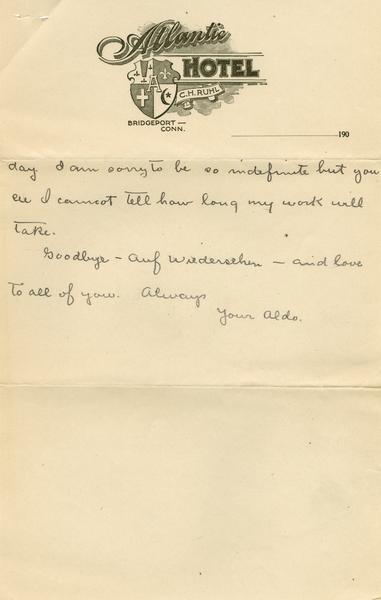 Atlantic
HOTEL
C.H. RUHL
BRIDGEPORT —
CONN.
190
day I am sorry to be so indefinite but you
see I cannot tell how long my work will
take.
Goodbye – Auf Wiedersehen – and love
to all of you. Always
Your Aldo.